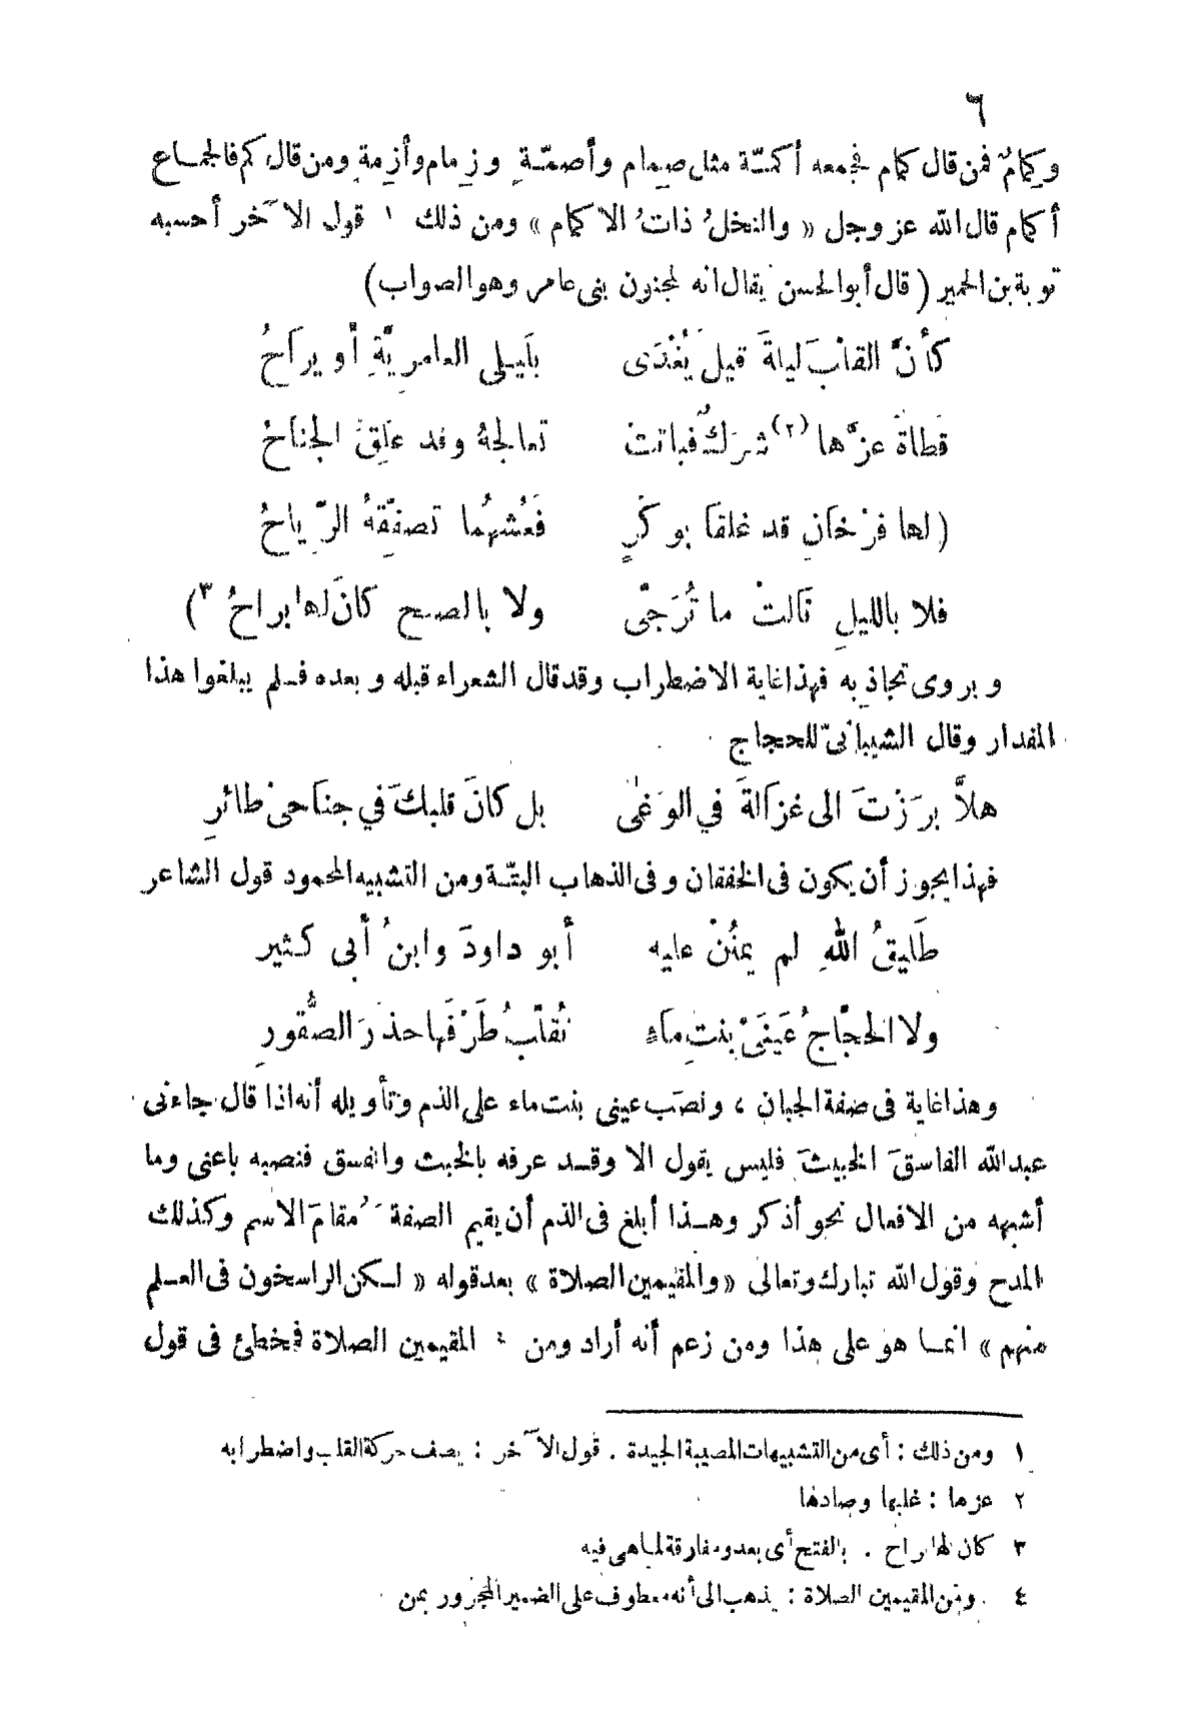 ٦
وكِمامٌ فمن قال كمام فجمعه أكمّة مثل صِمام وأصمّة وزِمام وأزِمة ومن قال كم فالجماع
أكمام قال الله عز وجل « والنخلُ ذاتُ الاكمام » ومن ذلك ١ قول الآخر أحسبه
توبة بن الحمير ( قال أبو الحسن يقال انه لمجنون بنى عامر وهو الصواب)
كأنَّ القلبَ ليلةَ قيل يُغْدَى بلَيلى العامرِيَّةِ أو يراَحُ
قطاةٌ عزَّها (٢) شرَكٌ فباتتْ تعالجهُ وقد علِقَ الجناحُ
(لها فرْخانِ قد غلقا بوكرٍ فعُشهُما تصفّقهُ الرّياحُ
فلا بالليلِ نالتْ ما تُرَجّى ولا بالصبح كانَ لها براحُ ٣)
ويروى تجاذبه فهذا غاية الاضطراب وقد قال الشعراء قبله وبعده فلم يبلغوا هذا
المقدار وقال الشيبانىّ للحجاج
هلاَّ برَزْتَ الى غزالةَ في الوَغى بل كانَ قلبكَ في جناحىْ طائرِ
فهذا يجوز أن يكون فى الخفقان وفى الذهاب البتّة ومن التشبيه المحمود قول الشاعر
طَليقُ اللهِ لم يمنُنْ عليه أبو داودَ وابنُ أبى كثير
ولا الحجّاجُ عَينَىْ بنتِ ماءٍ تُقلّبُ طَرْفَها حذرَ الصُّقورِ
وهذا غاية فى صفة الجبان ، ونصَب عينى بنت ماء على الذم وتأويله أنه اذا قال جاءنى
عبد الله الفاسقَ الخبيثَ فليس يقول الا وقد عرفه بالخبث والفسق فنصبه باعنى وما
أشبهه من الافعال نحو أذكر وهذا أبلغ فى الذم أن يقيم الصفة مُقامَ الاسم وكذلك
المدح وقول الله تبارك وتعالى « والمقيمين الصلاة » بعد قوله « لكن الراسخون فى العلم
منهم » انما هو على هذا ومن زعم أنه أراد ومن ٤ المقيمين الصلاة فمخطئ فى قول
١ ومن ذلك : أى من التشبيهات المصيبة الجيدة . قول الآخر : يصف حركة القلب واضطرابه
٢ عزها : غلبها وصادها
٣ كان لها براح . بالفتح أى بعد ومفارقة لما هى فيه
٤ ومن المقيمين الصلاة : يذهب الى أنه معطوف على الضمير المجزور بمن